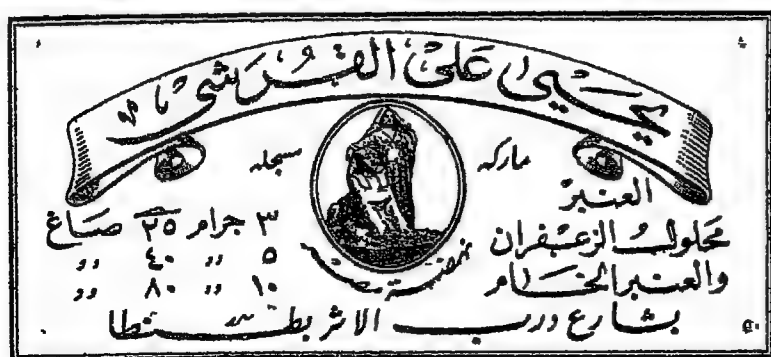 يحيى على القرشى
ماركه مسجله
نهضة مصر
العنبر
محلول الزعفران
والعنبر الخام
٣ جرام ٢٥ صاغ
٥ » ٤٠ »
١٠ » ٨٠ »
بشارع درب الاثر بطنطا